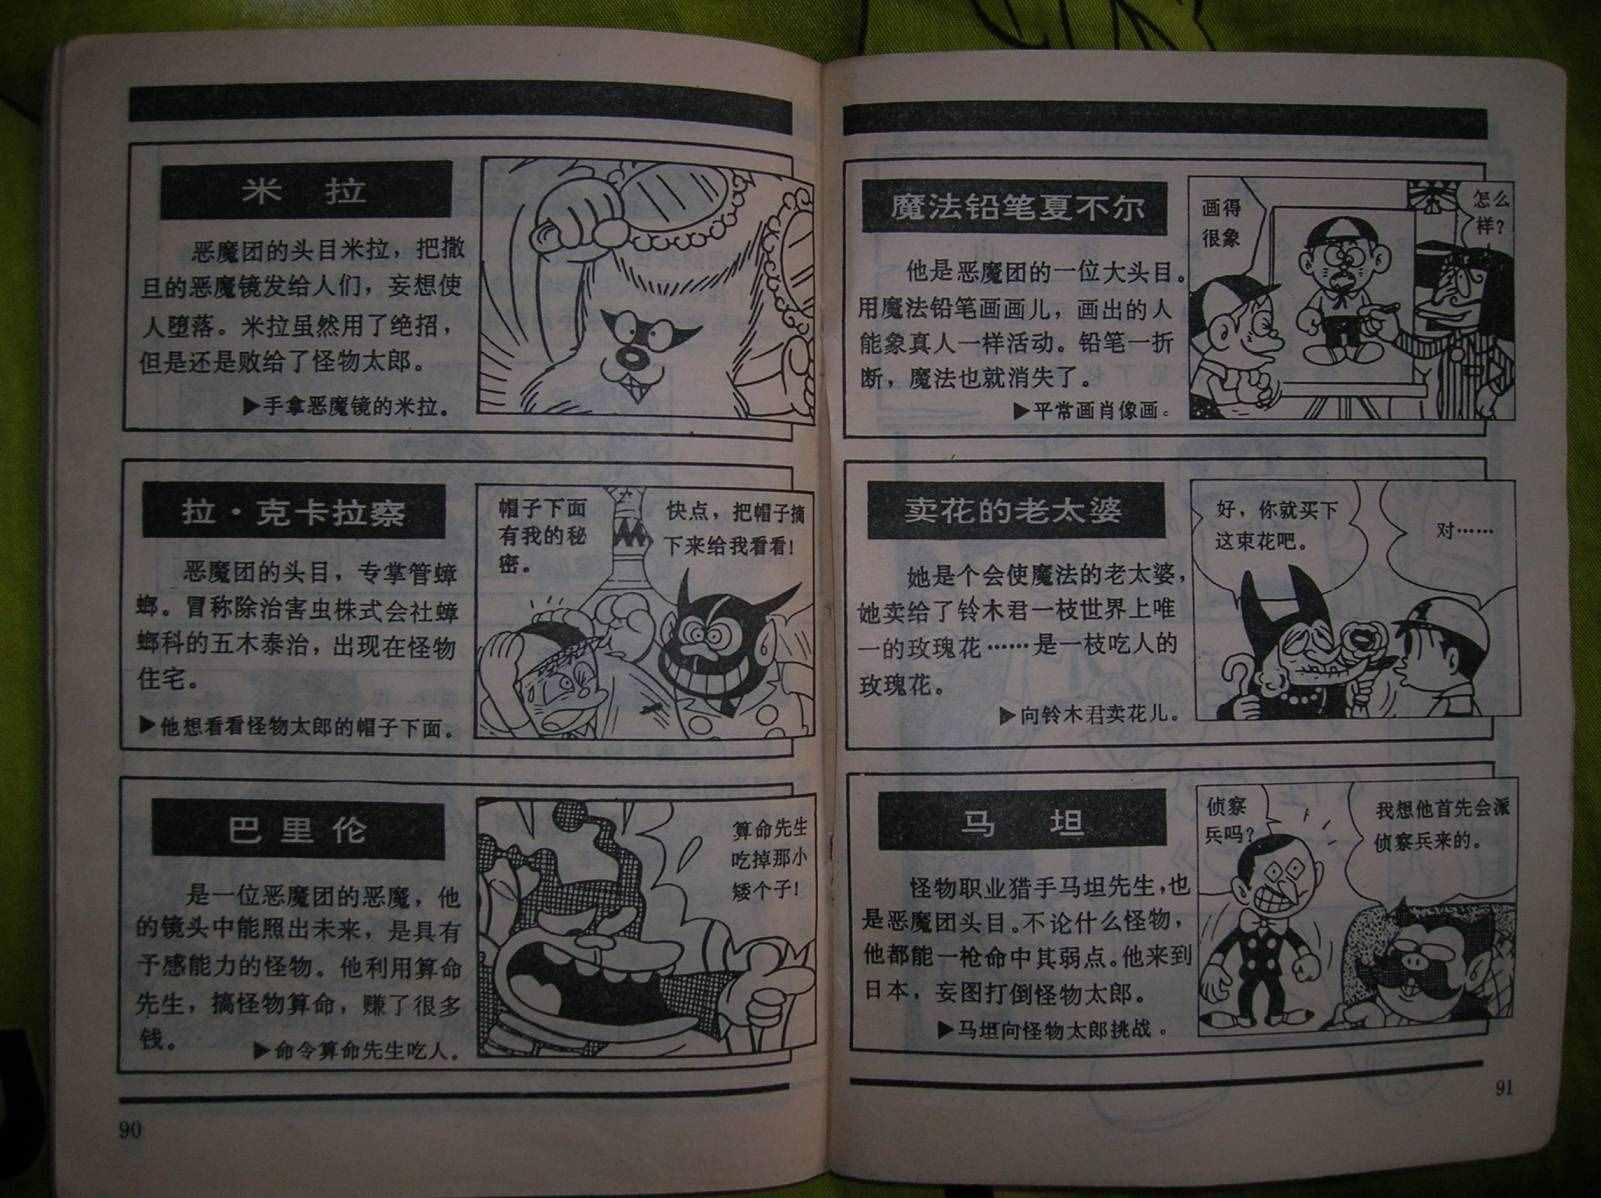 米 拉
恶魔团的头目米拉，把撒
旦的恶魔镜发给人们，妄想使
人堕落。米拉虽然用了绝招，
但是还是败给了怪物太郎。
▶手拿恶魔镜的米拉。
拉·克卡拉察
恶魔团的头目，专掌管蟑
螂。冒称除治害虫株式会社蟑
螂科的五木泰治，出现在怪物
住宅。
▶他想看看怪物太郎的帽子下面。
帽子下面
有我的秘
密。
快点，把帽子摘
下来给我看看！
巴里伦
是一位恶魔团的恶魔，他
的镜头中能照出未来，是具有
予感能力的怪物。他利用算命
先生，搞怪物算命，赚了很多
钱。
▶命令算命先生吃人。
算命先生
吃掉那小
矮个子！
90
魔法铅笔夏不尔
他是恶魔团的一位大头目。
用魔法铅笔画画儿，画出的人
能象真人一样活动。铅笔一折
断，魔法也就消失了。
▶平常画肖像画。
画得
很象
怎么
样？
卖花的老太婆
她是个会使魔法的老太婆，
她卖给了铃木君一枝世界上唯
一的玫瑰花……是一枝吃人的
玫瑰花。
▶向铃木君卖花儿。
好，你就买下
这束花吧。
对……
马 坦
怪物职业猎手马坦先生，也
是恶魔团头目。不论什么怪物，
他都能一枪命中其弱点。他来到
日本，妄图打倒怪物太郎。
▶马坦向怪物太郎挑战。
侦察
兵吗？
我想他首先会派
侦察兵来的。
91